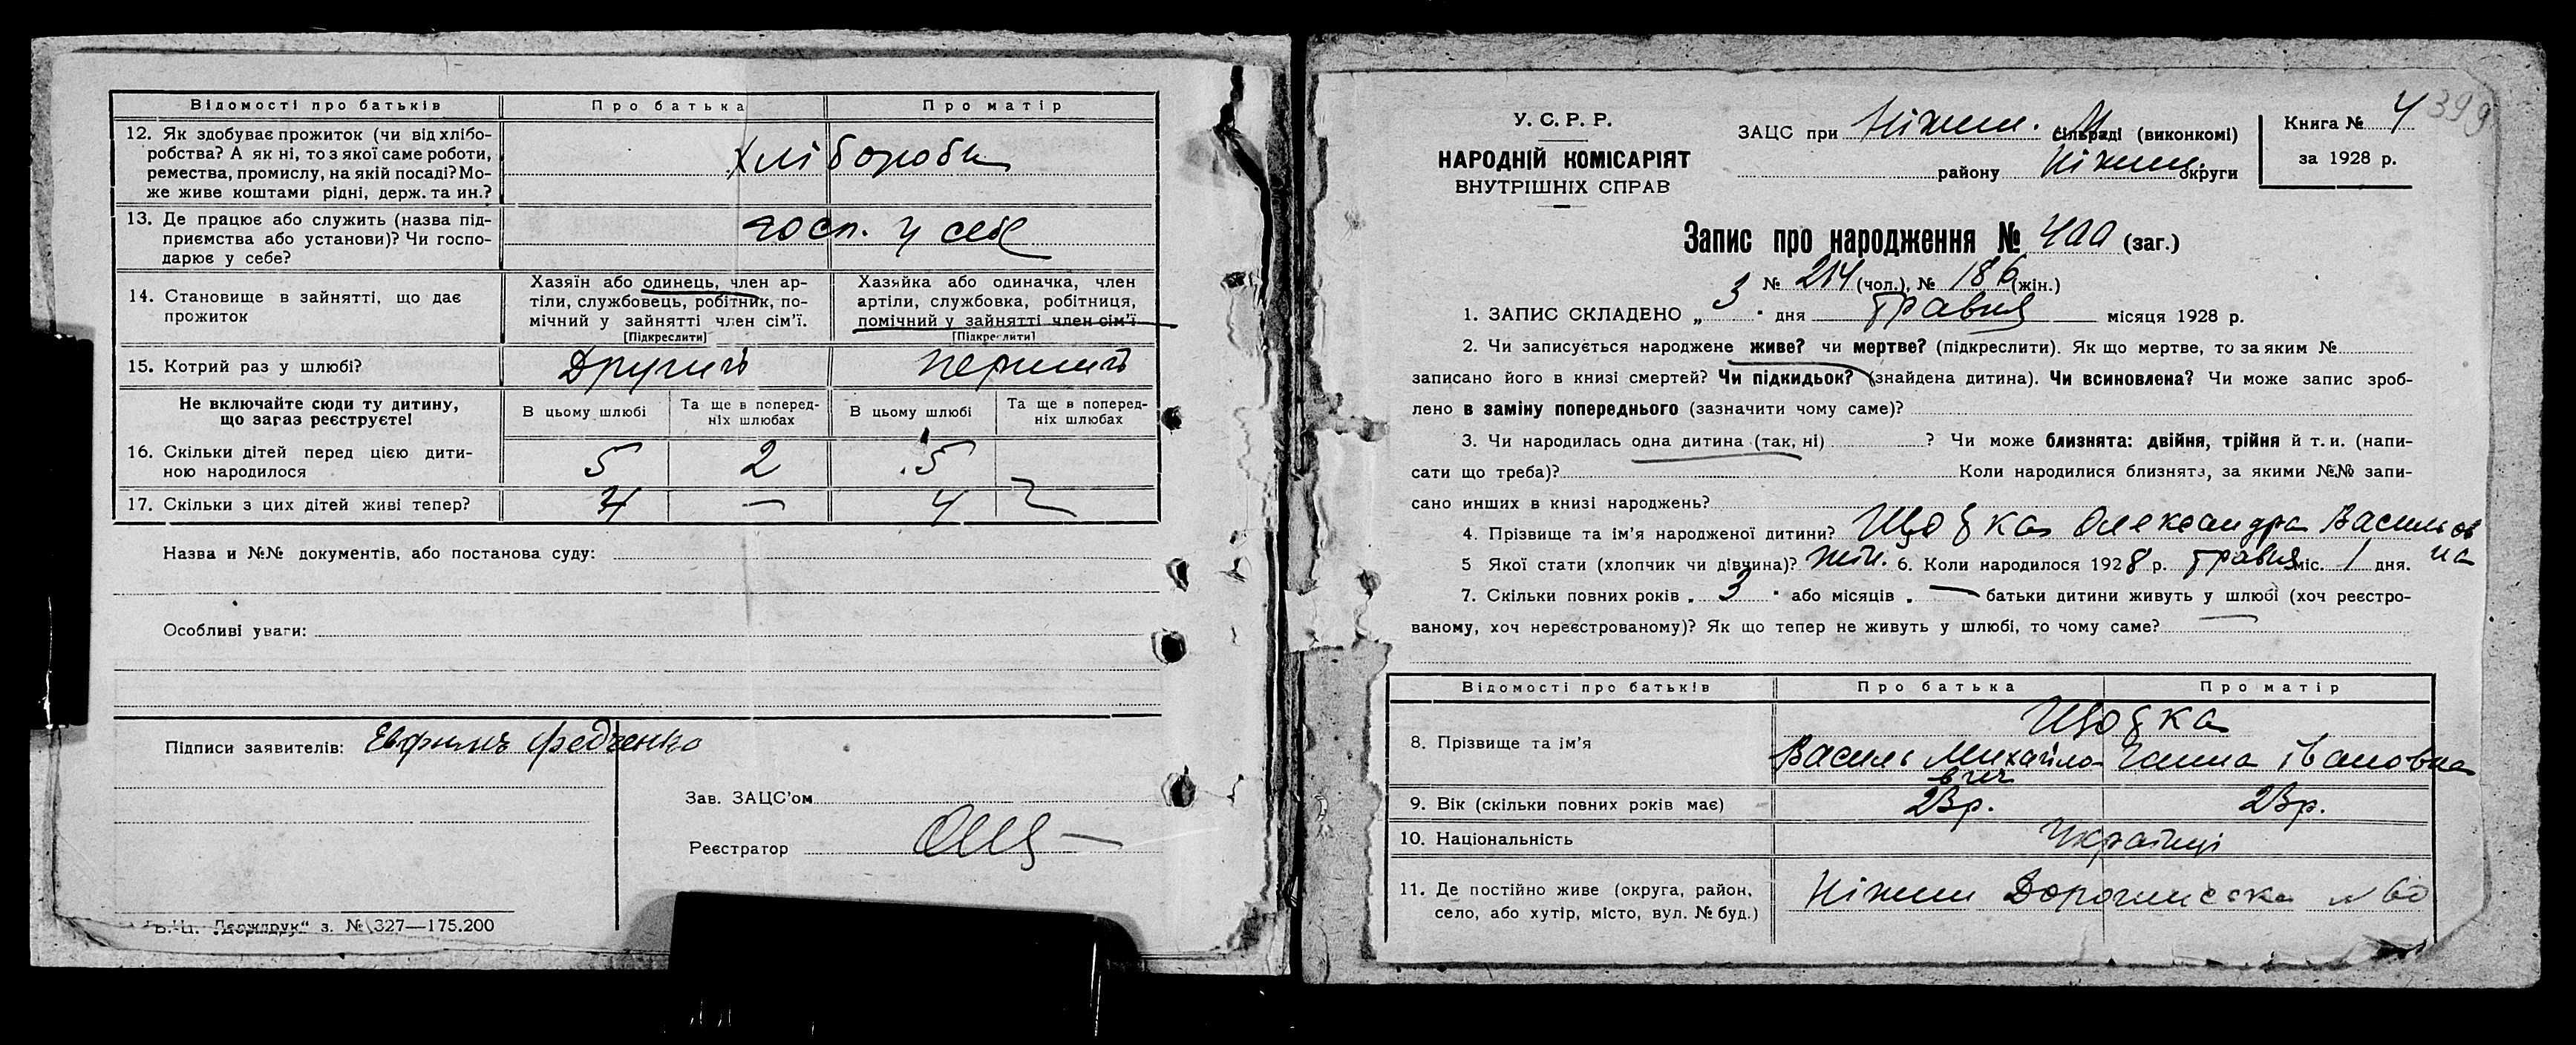 Відомості про батьків
Про батька
Про матір
12. Як здобуває прожиток (чи від хлібо-
робства? А як ні, то з якої саме роботи,
ремества, промислу, на якій посаді? Мо-
же живе коштами рідні, держ. та ин.?
хлібороби
13. Де працює або служить (назва під-
приємства або установи)? Чи госпо-
дарює у себе?
госп. у себе
14. Становище в зайнятті, що дає
прожиток
Хазяїн або одинець, член ар-
тіли, службовець, робітник, по-
мічний у зайнятті член сім'ї.
[Підкреслити]
Хазяйка або одиначка, член
артіли, службовка, робітниця,
помічний у зайнятті член сім'ї
[Підкреслити]
15. Котрий раз у шлюбі?
Другий
перший
Не включайте сюди ту дитину,
що зараз реєструєте!
В цьому шлюбі
Та ще в поперед-
ніх шлюбах
В цьому шлюбі
Та ще в поперед-
ніх шлюбах
16. Скільки дітей перед цією дити-
ною народилося
5 2 5
17. Скільки з цих дітей живі тепер?
4 — 4
Назва и №№ документів, або постанова суду:
Особливі уваги:
Підписи заявителів: Евфимъ Федченко
Зав. ЗАЦС'ом
Реєстратор
"Держдрук" з. № 327—175.200
У. С. Р. Р.
НАРОДНІЙ КОМІСАРІЯТ
ВНУТРІШНІХ СПРАВ
ЗАЦС при Ніжин. М. сільраді (виконкомі)
району Ніжин. округи
Книга № 4
за 1928 р.
399
Запис про народження № 400 (заг.)
№ 214 (чол.), № 186 (жін.)
1. ЗАПИС СКЛАДЕНО „ 3 " дня травня місяця 1928 р.
2. Чи записується народжене живе? чи мертве? (підкреслити). Як що мертве, то за яким №
записано його в книзі смертей? Чи підкидьок? (знайдена дитина). Чи всиновлена? Чи може запис зроб-
лено в заміну попереднього (зазначити чому саме)?
3. Чи народилась одна дитина (так, ні) ? Чи може близнята: двійня, трійня й т. и. (напи-
сати що треба)? Коли народилися близнята, за якими №№ запи-
сано инших в книзі народжень?
4. Прізвище та ім'я народженої дитини? Цюцка Олександра Васильов
на
5 Якої стати (хлопчик чи дівчина)? жін. 6. Коли народилося 1928 р. травня міс. 1 дня.
7. Скільки повних років „ 3 " або місяців „ — батьки дитини живуть у шлюбі (хоч реєстро-
ваному, хоч нереєстрованому)? Як що тепер не живуть у шлюбі, то чому саме?
Відомості про батьків
Про батька
Про матір
8. Прізвище та ім'я
Цюцка
Василь Михайло
вич
Ганна Івановна
9. Вік (скільки повних років має)
23р. 23р.
10. Національність
Українці
11. Де постійно живе (округа, район,
село, або хутір, місто, вул. № буд.)
Ніжин
№ 60